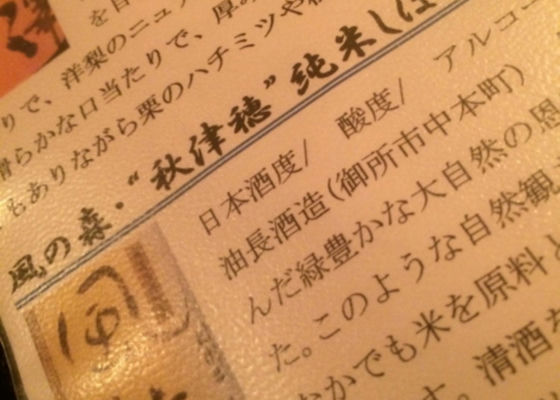 を自
、洋梨のニュア
りで、滑らかな口当たりで、厚み
滑らかな口当たりで、栗のハチミツや
もありながら栗のハチミツや
風の森・“秋津穂”純米しぼ
日本酒度/ 酸度/ アルコー
油長酒造(御所市中本町)
んだ緑豊かな大自然の恩
た。このような自然観
なかでも米を原料と
す。清酒を